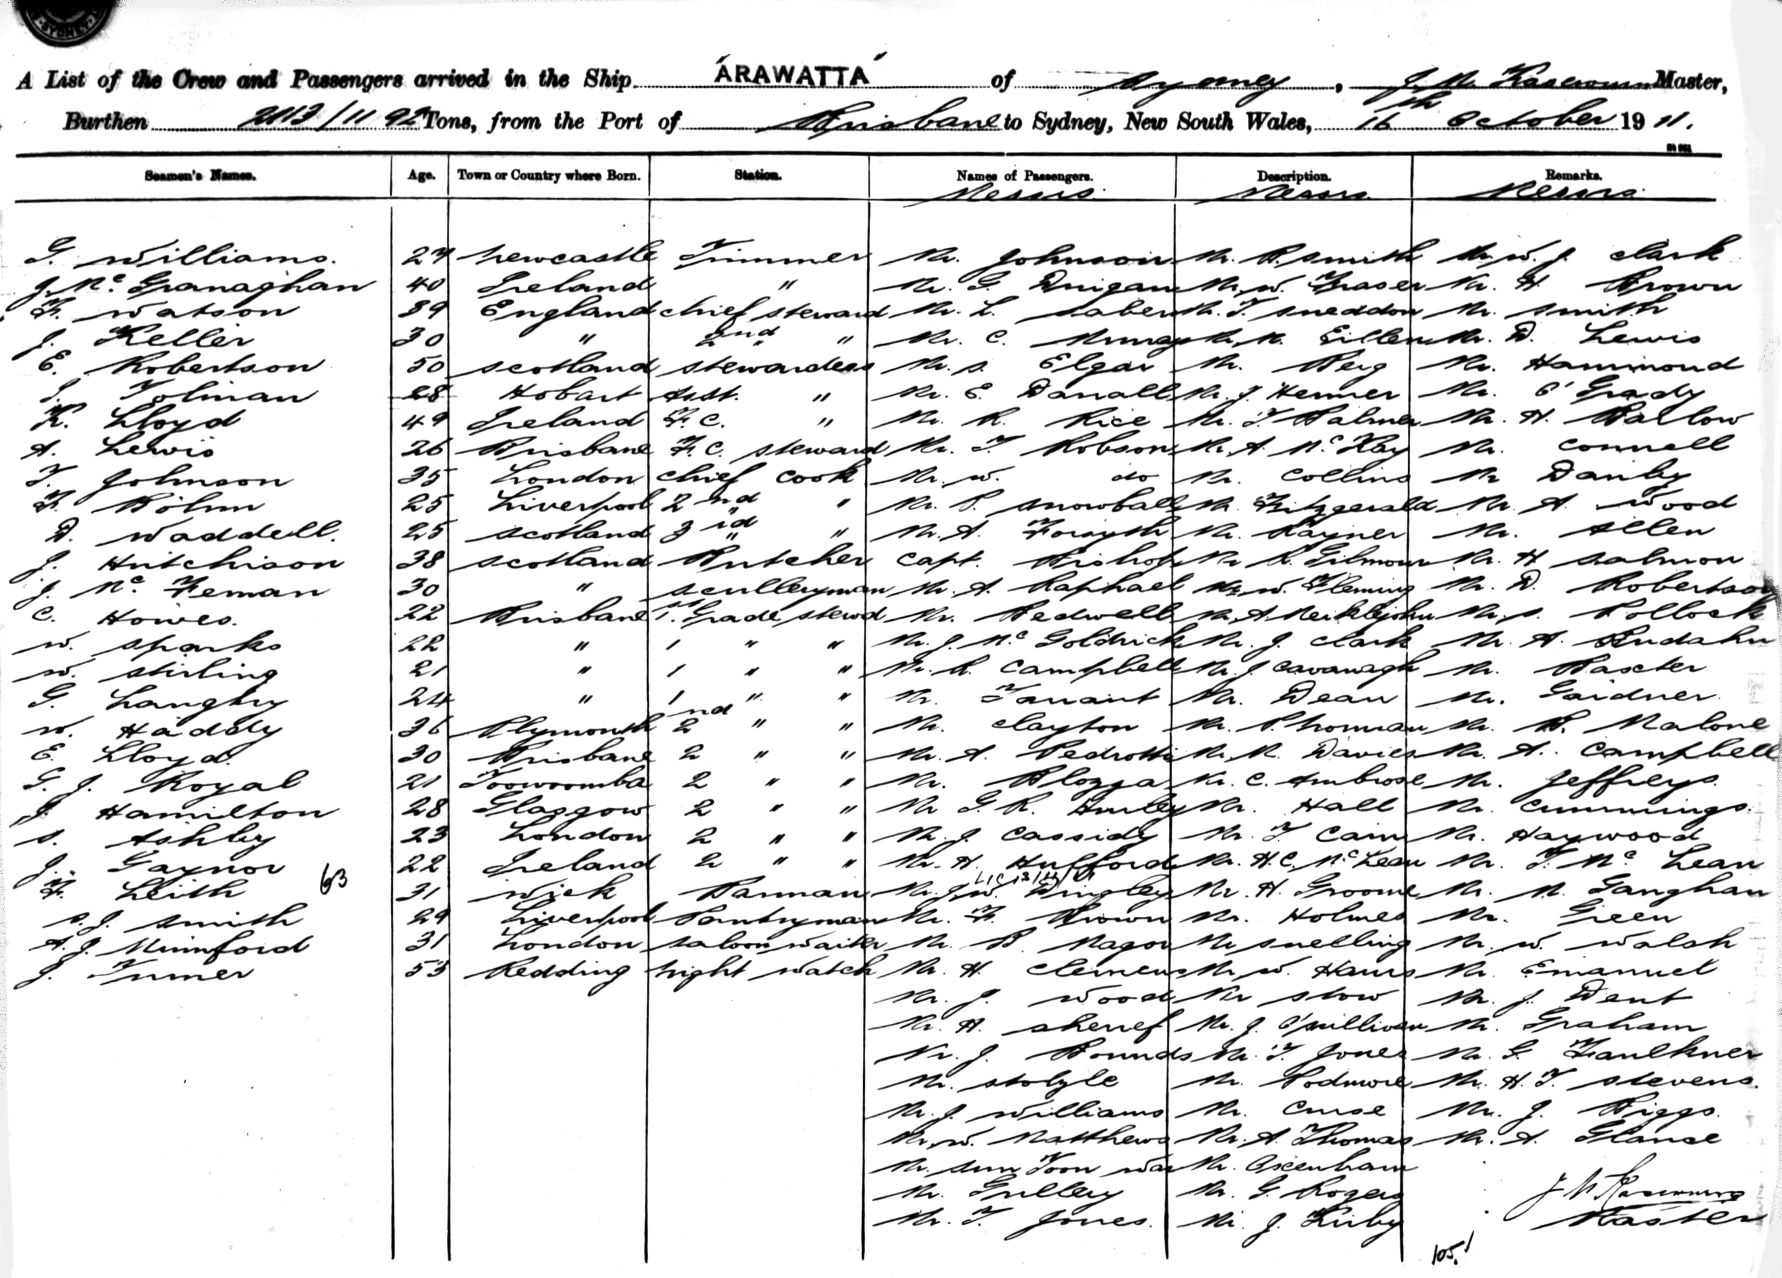 SYDNEY
A List of the Crew and Passengers arrived in the Ship "ARAWATTA" of Sydney, J. M. Master,
Burthen 2113/1192 Tons, from the Port of Brisbane to Sydney, New South Wales, 16th October 1911.
Seamen's Names. Age. Town or Country where Born. Station. Names of Passengers. Description. Remarks.
Messrs. Messrs. Messrs.
G. Williams. 27 Newcastle Trimmer Mr. Johnson Mr. P. Smith Mr. W. J. Clark
J. Mc Granaghan 40 Ireland " Mr. G. Duigan Mr. W. Fraser Mr. H Brown
F. Watson 39 England chief steward Mr. L. Mr. T. Sneddon Mr. Smith
J. Keller 30 " 2nd " Mr. C. Murray Mr. M. Mr. D. Lewis
E. Robertson 50 Scotland stewardess Mr. S. Elgar Mr. Berg Mr. Hammond
Tolman 28 Hobart Asst. " Mr. E. Danall Mr. J. Henner Mr. O'Grady
K. Lloyd 49 Ireland F. C. " Mr. R. Rice Mr. T. Palmer Mr. H. Barlow
A. Lewis 26 Brisbane F. C. steward Mr. T. Robson Mr. A. McKay Mr. Connell
T. Johnson 35 London chief cook Mr. W. do Mr. Collins Mr Danby
F. Bohm 25 Liverpool 2nd " Mr. P. Snowball Mr. Fitzgerald Mr. A. Wood
D. Waddell. 25 Scotland 3rd " " Mr. A. Forsyth Mr. Rayner Mr. Allen
J. Hutchison 38 Scotland Butcher Capt. Bishop Mr R. Gilmour Mr. H Salmon
J. Mc Feman 30 " scullleryman Mr. A. Raphael Mr. W. Fleming Mr. D. Robertson
C. Howes. 22 Brisbane 1st Grade stewd Mr. Bedwell Mr. A. Meiklejohn Mr. S. Pollock
W. Sparks 22 " 1 " " Mr. J. Mc Goldrick Mr. J. Clark Mr. A.
W. Stirling 21 " 1 " " Mr. R. Campbell Mr. J. Cavanagh Mr. Baxter
G. Langtry 24 " 1 " " Mr. Tanant Mr. Dean Mr. Gardner.
W. Haddy 36 Plymouth 2nd " " Mr. Clayton Mr. P. Norman Mr. B. Malone
E. Lloyd. 30 Brisbane 2 " " Mr. A. Pedrotti Mr. R. Davies Mr. A. Campbell
G. J. Royal 21 Toowoomba 2 " " Mr. Mr. C. Ambrose Mr. Jeffreys.
J. Hamilton 28 Glasgow 2 " " Mr G. R. Hurley Mr. Hall Mr. Cummings.
S. Ashby 23 London 2 " " Mr. J. Cassidy Mr. T. Cain Mr. Haywood
J. Gaynor 22 Ireland 2 " " Mr. H. Hufford Mr. H. C. McLean Mr. T. Mc Lean
F. Leith 63 31 Wick Barman Mr. J. W. Dingley Mr. H. Groome Mr. M. Ganghan
S. J. Smith 29 Liverpool Pantryman Mr. F. Brown Mr. Holmes Mr. Green
A. J. Minnford 31 London saloon waiter Mr. B. Nagor Mr Snelling Mr. W. Walsh
J. Turner 53 Redding Night watch Mr. H. Clemens Mr. W. Harris Mr. Emanuel
Mr. J. Wood Mr Stow Mr. J. Dent
Mr. H. Sherref Mr. J. O'Sullivan Mr. Graham
Mr. J. Bounds Mr. T. Jones Mr. G. Faulkner
Mr. Stolyle Mr. Podmore Mr. H. T. Stevens.
Mr. J. Williams Mr. Curse Mr. J. Biggs.
Mr. W. Matthews Mr. A. Thomas Mr. A. Glanse
Mr. Sun Toon War Mr. Axenham
Mr. Gulley Mr. G. Rogers
Mr. T. Jones. Mr. J. Kirby Master
105